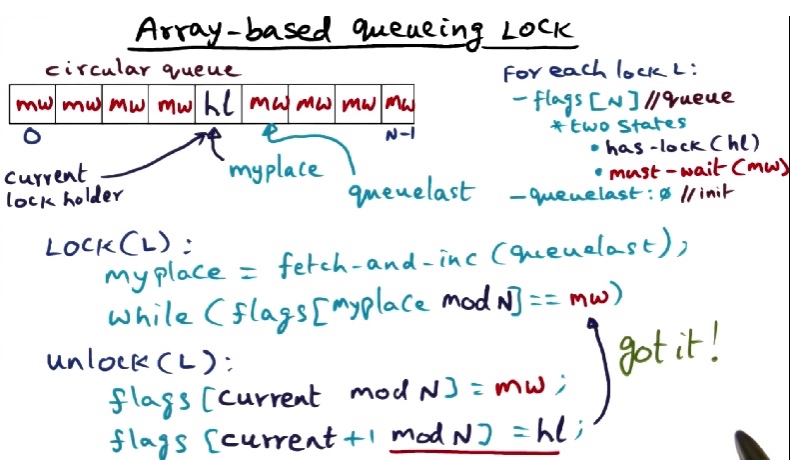 Array-based queueing LOCK
circular queue
mw mw mw mw hl mw mw mw mw
0 N-1
current
lock holder
myplace
queuelast
For each lock L:
- flags [N] //queue
* two states
• has-lock (hl)
• must-wait (mw)
- queuelast: ø //init
LOCK(L):
myplace = fetch-and-inc (queuelast);
while (flags[myplace mod N] == mw)
unlock(L):
flags [current mod N] = mw;
flags [current+1 mod N] = hl;
got it!